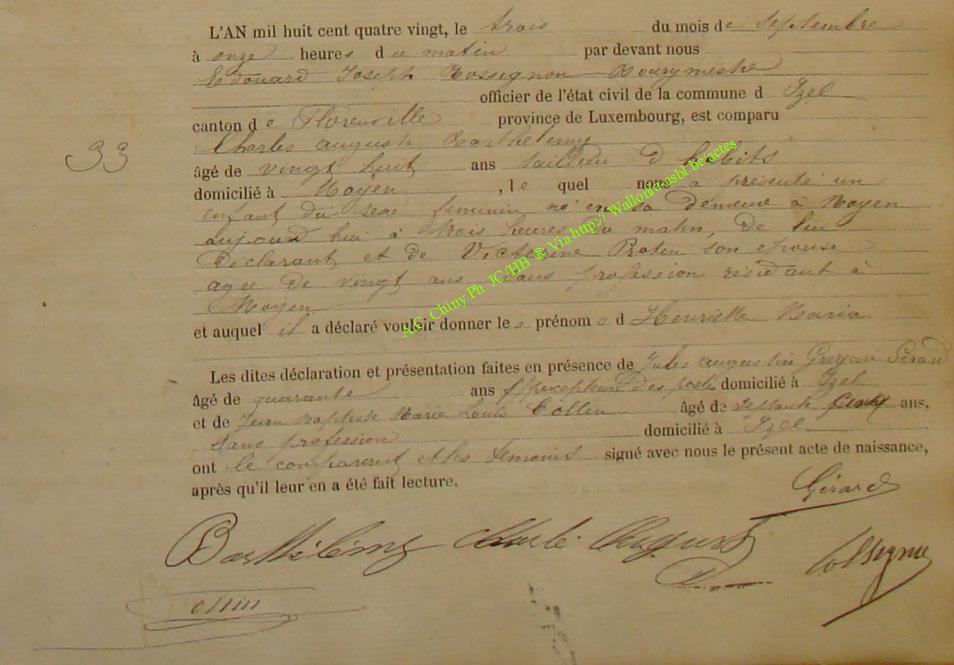 L'AN mil huit cent quatre vingt, le trois du mois de Septembre
à onze heures du matin par devant nous
Edouard Joseph Rossignon Bourgmestre
officier de l'état civil de la commune d Izel
canton de Florenville province de Luxembourg, est comparu
33
Charles auguste Barthelemy
âgé de vingt huit ans tailleur d habits
domicilié à Moyen, le quel nous a présenté un
enfant du sexe feminin né en sa demeure à Moyen
aujourd hui à trois heures du matin, De lui
Déclarant et de Victorine Rotin son epouse
agée de vingt ans sans profession residant à
Moyen
et auquel il a déclaré vouloir donner les prénoms d Henriette Maria
Les dites déclaration et présentation faites en présence de Jules augustin Gérard
âgé de quarante ans percepteur des postes domicilié à Izel
et de Jean Baptiste Marie Louis Collin âgé de septante ans,
sans profession domicilié à Izel
ont le comparant et les temoins signé avec nous le présent acte de naissance,
après qu'il leur en a été fait lecture.
Gérard
Barthélémy Charles Auguste
Rossignon
Collin
A.S. Chiny Ph JC/HB ® Via http:// Wallonia asbl.be/actes